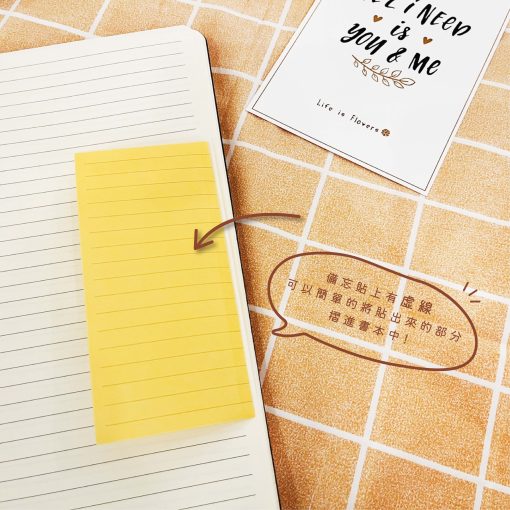 I NEED
is
YOU & ME
Life is Flowers
備忘貼上有虛線
可以簡單的將貼出來的部分
摺進書本中!